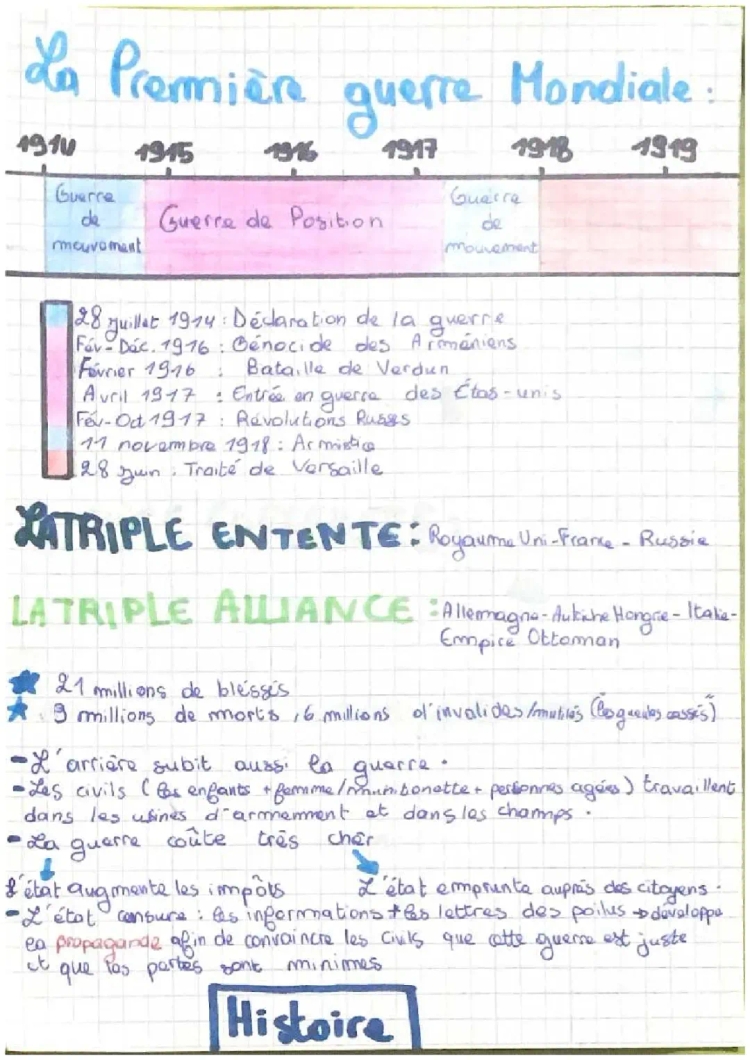 La Première guerre Mondiale :
1914 1915 1916 1917 1918 1919
Guerre de mouvement
Guerre de Position
Guerre de mouvement
28 juillet 1914 : Déclaration de la guerre
Fév-Déc. 1916 : Génocide des Arméniens
Février 1916 : Bataille de Verdun
Avril 1917 : Entrée en guerre des Étas-unis
Fév-Oct 1917 : Révolutions Russes
11 novembre 1918 : Armistice
28 juin : Traité de Versaille
LA TRIPLE ENTENTE : Royaume Uni-France - Russie
LA TRIPLE ALLIANCE : Allemagne-Autriche Hongrie - Italie-
Empire Ottoman
21 millions de blessés
9 millions de morts, 6 millions d'invalides/mutilés (les gueules cassés")
- L'arrière subit aussi la guerre.
- Les civils (les enfants + femme/munitionette + personnes agées) travaillent
dans les usines d'armement et dans les champs.
- La guerre coûte très cher
L'état augmente les impôts L'état emprunte auprès des citoyens.
- L'état censure : les informations + les lettres des poilus → développe
la propagande afin de convaincre les civils que cette guerre est juste
et que les pertes sont minimes
Histoire